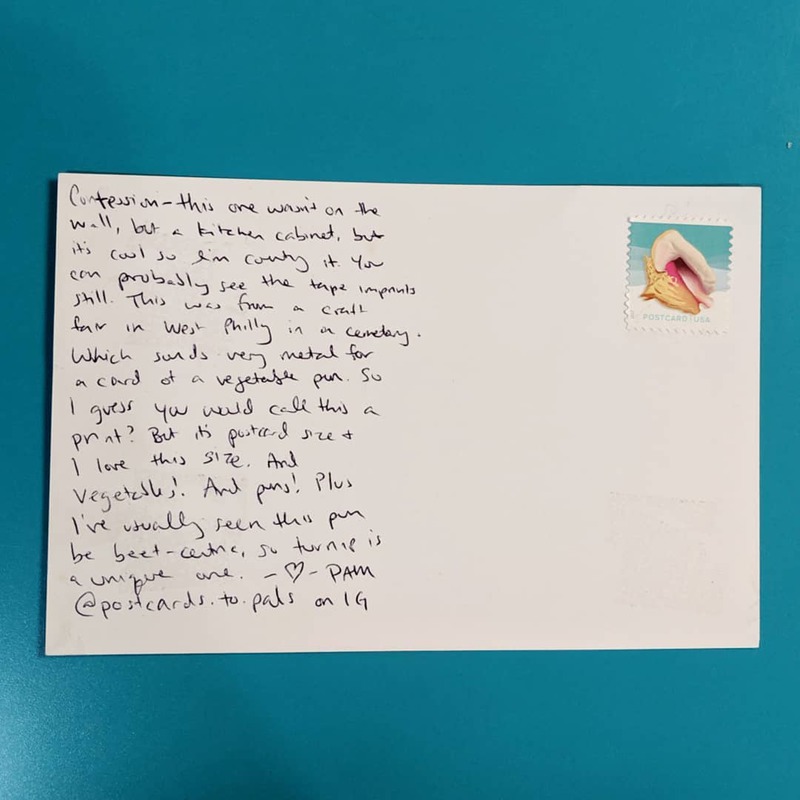 Confession - this one wasn't on the
wall, but a kitchen cabinet, but
it's cool so I'm county it. You
can probably see the tape imprints
still. This was from a craft
fair in West Philly in a cemetary.
Which sunds very metal for
a card of a vegetable pun. So
I guess you would call this a
print? But it's postcard size +
I love this size. And
Vegetables! And puns! Plus
I've usually seen this pun
be beet-centric, so turnip is
a unique one. -♡- PAM
@postcards.to.pals on IG
POSTCARD | USA